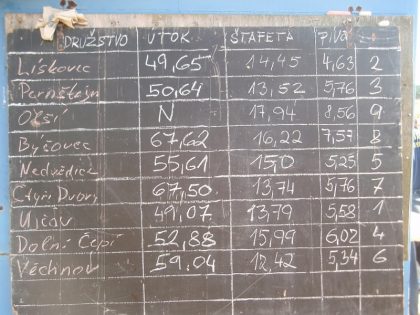 DRUŽSTVO ÚTOK ŠTAFETA PIVO
Lískovec 49,65 14,45 4,63 2
Pernštejn 50,64 13,52 5,76 3
Olší N 17,94 8,56 9
Býšovec 67,62 16,22 7,57 8
Nedvědice 55,61 15,0 5,25 5
Čtyři Dvory 67,50 13,74 5,76 7
Ujčov 49,07 13,79 5,58 1
Dolní Čepí 52,88 15,99 6,02 4
Věchnov 59,04 12,42 5,34 6